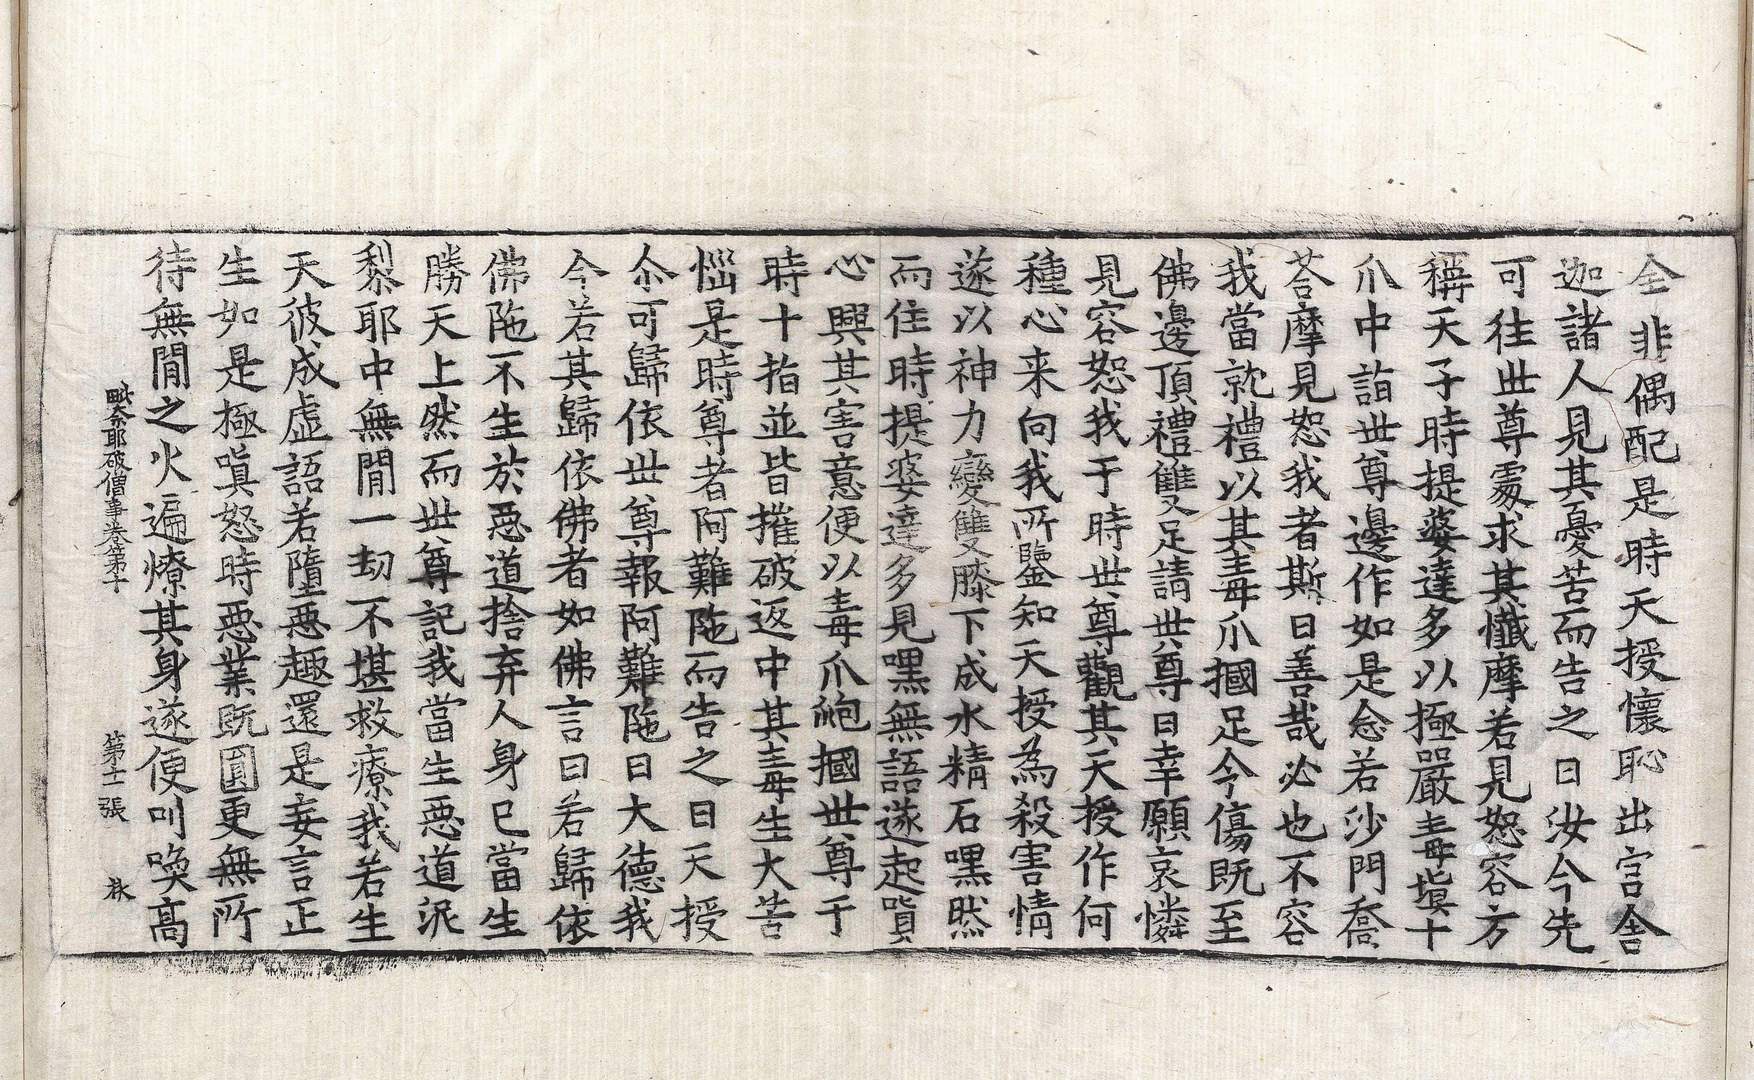 全非偶配是時天授懷恥出宮舍
迦諸人見其憂苦而告之曰汝今先
可往世尊處求其懺摩若見恕容方
稱天子時提婆達多以極嚴毒塡十
爪中詣世尊邊作如是念若沙門喬
荅摩見恕我者斯曰善哉必也不容
我當就禮以其毒爪摑足令傷既至
佛邊頂禮雙足請世尊曰幸願哀憐
見容恕我于時世尊觀其天授作何
種心来向我所鑒知天授為殺害情
遂以神力變雙膝下成水精石嘿然
而住時提婆達多見嘿無語遂起嗔
心興其害意便以毒爪𤔩摑世尊于
時十指並皆摧破返中其毒生大苦
惱是時尊者阿難陁而告之曰天授
尒可歸依世尊報阿難陁曰大德我
今若其歸依佛者如佛言曰若歸依
佛陁不生於惡道捨弃人身已當生
勝天上然而世尊記我當生惡道泥
黎耶中無間一劫不堪救療我若生
天彼成虛語若墮惡趣還是妄言正
生如是極嗔怒時惡業既圓更無所
待無間之火遍燎其身遂便叫喚高
毗奈耶破僧事卷第十 第十二張 𣏌